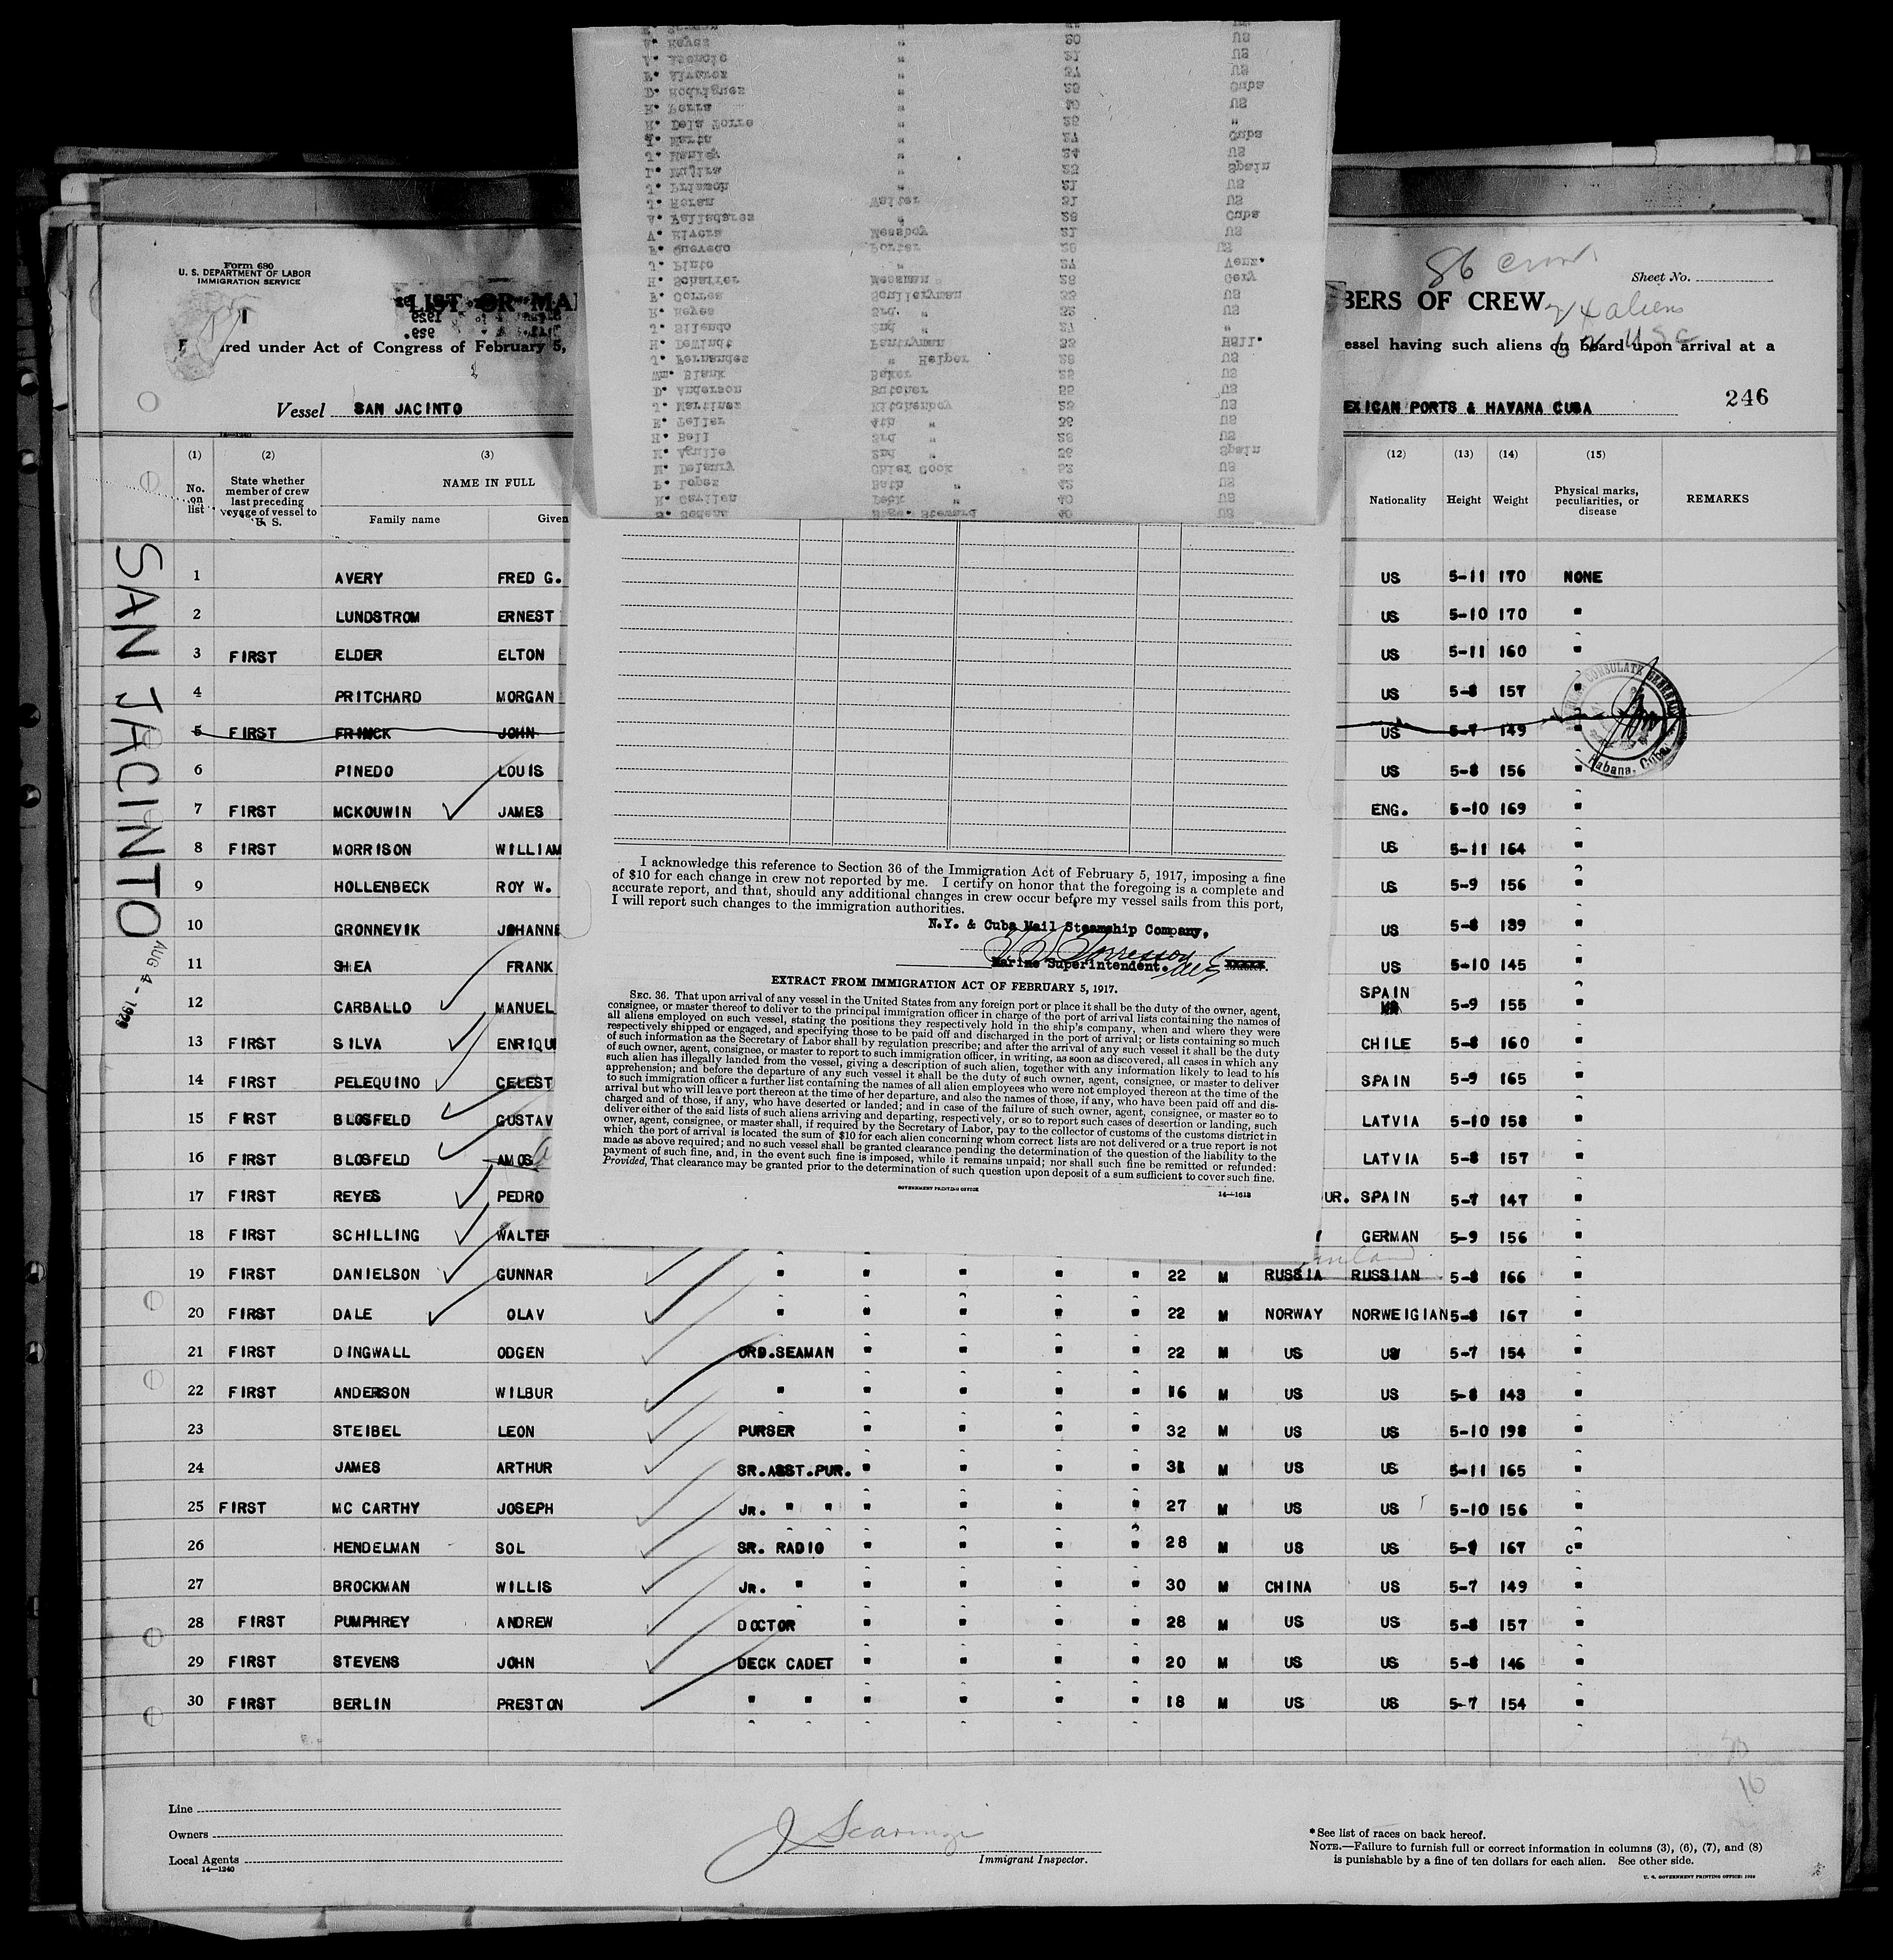 Form 680
U. S. DEPARTMENT OF LABOR
IMMIGRATION SERVICE
LIST OR MA
BERS OF CREW
Sheet No.
86 crew
aliens
USC
red under Act of Congress of February 5,
essel having such aliens on board upon arrival at a
Vessel SAN JACINTO
EXICAN PORTS & HAVANA CUBA
246
(1) (2) (3) (12) (13) (14) (15)
No. on list
State whether member of crew last preceding voyage of vessel to U. S.
NAME IN FULL
Family name Given
Nationality Height Weight
Physical marks, peculiarities, or disease
REMARKS
SAN JACINTO
AUG 4 - 1929
1 AVERY FRED G. US 5-11 170 NONE
2 LUNDSTROM ERNEST US 5-10 170 "
3 FIRST ELDER ELTON US 5-11 160 "
4 PRITCHARD MORGAN US 5-8 157 "
5 FIRST FRINCK JOHN US 5-7 149
6 PINEDO LOUIS US 5-8 156 "
7 FIRST MCKOUWIN JAMES ENG. 5-10 169 "
8 FIRST MORRISON WILLIAM US 5-11 164 "
9 HOLLENBECK ROY W. US 5-9 156 "
10 GRONNEVIK JOHANNE US 5-8 189 "
11 SHEA FRANK US 5-10 145 "
12 CARBALLO MANUEL SPAIN 5-9 155 "
13 FIRST SILVA ENRIQU CHILE 5-8 160 "
14 FIRST PELEQUINO CELEST SPAIN 5-9 165 "
15 FIRST BLOSFELD GUSTAV LATVIA 5-10 158 "
16 FIRST BLOSFELD AMOS LATVIA 5-8 157 "
17 FIRST REYES PEDRO UR. SPAIN 5-7 147 "
18 FIRST SCHILLING WALTER GERMAN 5-9 156 "
19 FIRST DANIELSON GUNNAR " " " " " 22 M RUSSIA RUSSIAN 5-8 166 "
20 FIRST DALE OLAV " " " " " 22 M NORWAY NORWEIGIAN 5-8 167 "
21 FIRST DINGWALL ODGEN ORD.SEAMAN " " " " 22 M US US 5-7 154 "
22 FIRST ANDERSON WILBUR " " " " " 16 M US US 5-8 143 "
23 STEIBEL LEON PURSER " " " " 32 M US US 5-10 198 "
24 JAMES ARTHUR SR.ASST.PUR. " " " " 31 M US US 5-11 165 "
25 FIRST MC CARTHY JOSEPH JR. " " " " " " 27 M US US 5-10 156 "
26 HENDELMAN SOL SR. RADIO " " " " 28 M US US 5-9 167 "
27 BROCKMAN WILLIS JR. " " " " " 30 M CHINA US 5-7 149 "
28 FIRST PUMPHREY ANDREW DOCTOR " " " " 28 M US US 5-8 157 "
29 FIRST STEVENS JOHN DECK CADET " " " " 20 M US US 5-8 146 "
30 FIRST BERLIN PRESTON " " " " " " 18 M US US 5-7 154 "
Habana, Cuba
A. Reyes " 20 US
A. Asencio " 21 US
F. Alvarez " 37 US
D. Rodriguez " 25 Cuba
K. Ferra " 40 US
H. Dela Torre " 25 "
Y. Marta " 27 Cuba
J. Manley " 24 US
L. Mujira " 25 Spain
J. Frismoh " 21 US
J. Horan Waiter 31 US
A. Valladares " 28 Cuba
A. Rivera Messboy 21 US
F. Quevedo Porter 26 US
J. Pinto " 27 Venz.
H. Schaffer Messman 28 Gery
F. Correa Sculleryman 33 US
H. Reyes 3rd. " 32 US
J. Silendo 2nd " 27 "
H. DeWindt Pantryman 33 Holl.
J. Fernandes " Helper 28 US
Wm. Blank Baker 28 US
D. Anderson Butcher 55 US
J. Martinez Kitchenboy 25 US
E. Teller 4th " 36 US
H. Ball 3rd " 28 US
K. Aguile 2nd " 36 Spain
M. Delanry Chief Cook 52 US
P. Lopez Bath " 42 US
H. Carllen Deck " 40 US
S. Sedent Bage. Steward 40 US
I acknowledge this reference to Section 36 of the Immigration Act of February 5, 1917, imposing a fine
of $10 for each change in crew not reported by me. I certify on honor that the foregoing is a complete and
accurate report, and that, should any additional changes in crew occur before my vessel sails from this port,
I will report such changes to the immigration authorities.
N.Y. & Cuba Mail Steamship Company,
Marine Superintendent.
EXTRACT FROM IMMIGRATION ACT OF FEBRUARY 5, 1917.
SEC. 36. That upon arrival of any vessel in the United States from any foreign port or place it shall be the duty of the owner, agent,
consignee, or master thereof to deliver to the principal immigration officer in charge of the port of arrival lists containing the names of
all aliens employed on such vessel, stating the positions they respectively hold in the ship's company, when and where they were
respectively shipped or engaged, and specifying those to be paid off and discharged in the port of arrival; or lists containing so much
of such information as the Secretary of Labor shall by regulation prescribe; and after the arrival of any such vessel it shall be the duty
of such owner, agent, consignee, or master to report to such immigration officer, in writing, as soon as discovered, all cases in which any
such alien has illegally landed from the vessel, giving a description of such alien, together with any information likely to lead to his
apprehension; and before the departure of any such vessel it shall be the duty of such owner, agent, consignee, or master to deliver
to such immigration officer a further list containing the names of all alien employees who were not employed thereon at the time of the
arrival but who will leave port thereon at the time of her departure, and also the names of those, if any, who have been paid off and dis-
charged and of those, if any, who have deserted or landed; and in case of the failure of such owner, agent, consignee, or master so to
deliver either of the said lists of such aliens arriving and departing, respectively, or so to report such cases of desertion or landing, such
owner, agent, consignee, or master shall, if required by the Secretary of Labor, pay to the collector of customs of the customs district in
which the port of arrival is located the sum of $10 for each alien concerning whom correct lists are not delivered or a true report is not
made as above required; and no such vessel shall be granted clearance pending the determination of the question of the liability to the
payment of such fine, and, in the event such fine is imposed, while it remains unpaid; nor shall such fine be remitted or refunded:
Provided, That clearance may be granted prior to the determination of such question upon deposit of a sum sufficient to cover such fine.
GOVERNMENT PRINTING OFFICE
14—1613
Line
Owners
Local Agents
14—1240
Immigrant Inspector.
*See list of races on back hereof.
NOTE.—Failure to furnish full or correct information in columns (3), (6), (7), and (8)
is punishable by a fine of ten dollars for each alien. See other side.
U. S. GOVERNMENT PRINTING OFFICE: 1928